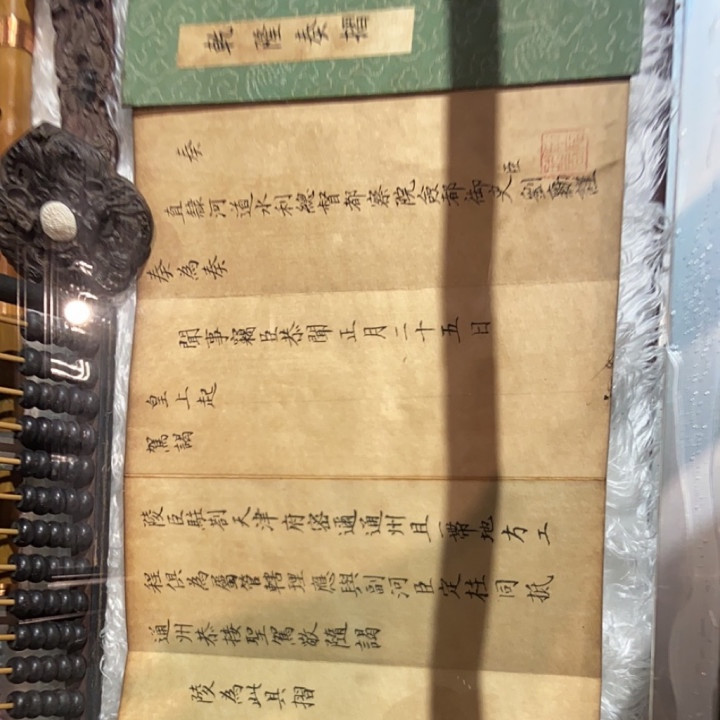 乾隆奏摺
奏
直隸河道水利總督都察院僉都御史臣劉勷謹
奏為奏
聞事竊臣恭聞正月二十五日
皇上起
駕謁
陵臣駐劄天津府密邇通州且一帶地方工
程俱為屬管轄理應與副河臣定柱同抵
通州恭接聖駕敬隨謁
陵為此具摺